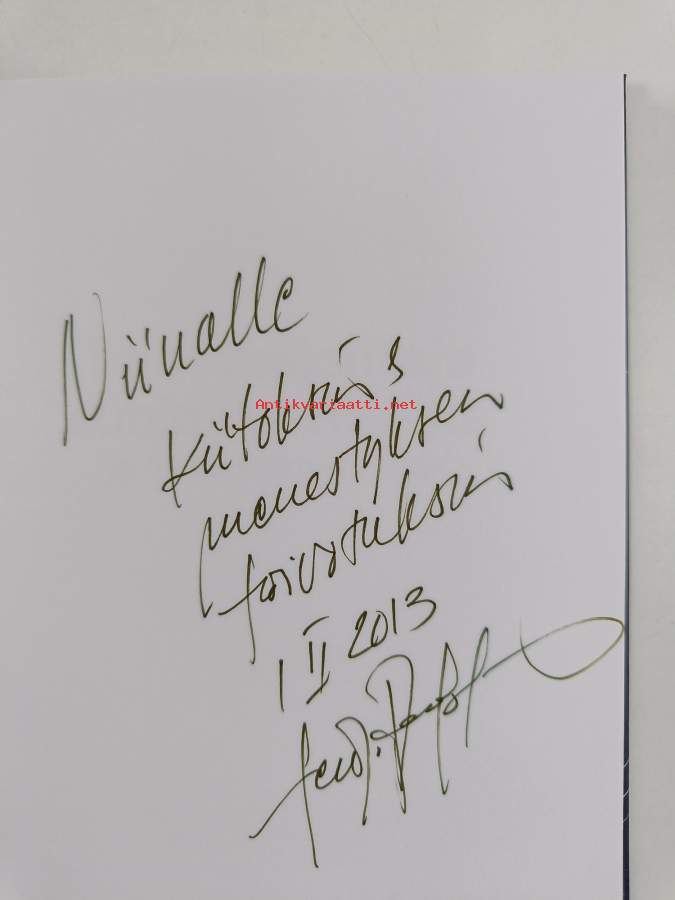 Niinalle
Kiitoksin &
Antikvariaatti.net
menestyksen
toivotuksin
1 II 2013